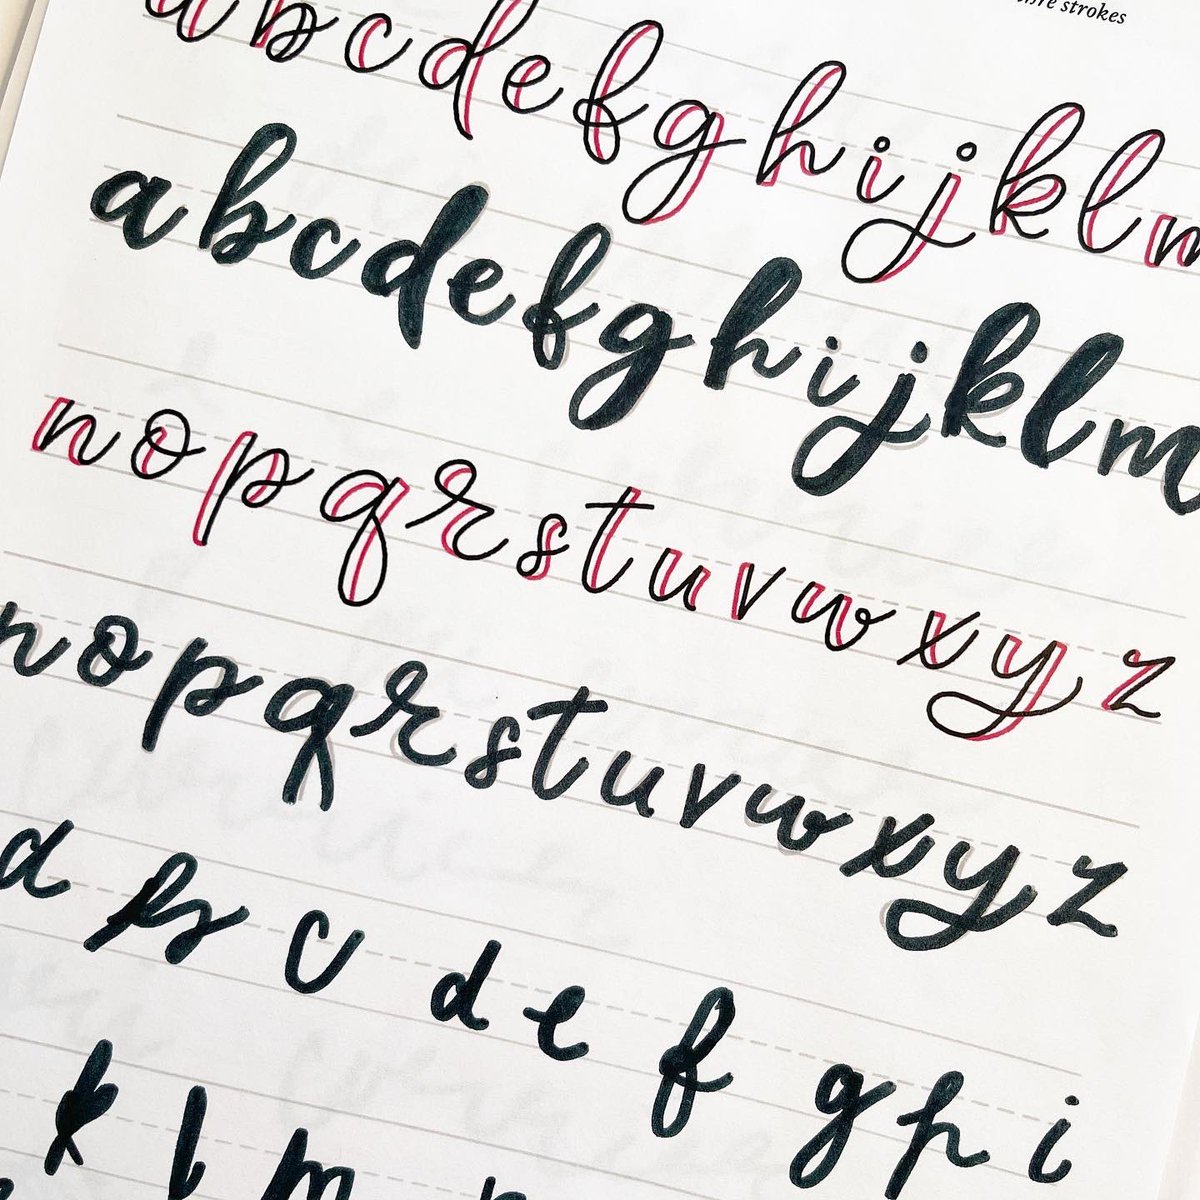 strokes
a b c d e f g h i j k l m
a b c d e f g h i j k l m
n o p q r s t u v w x y z
n o p q r s t u v w x y z
d b c d e f g h i
k l m